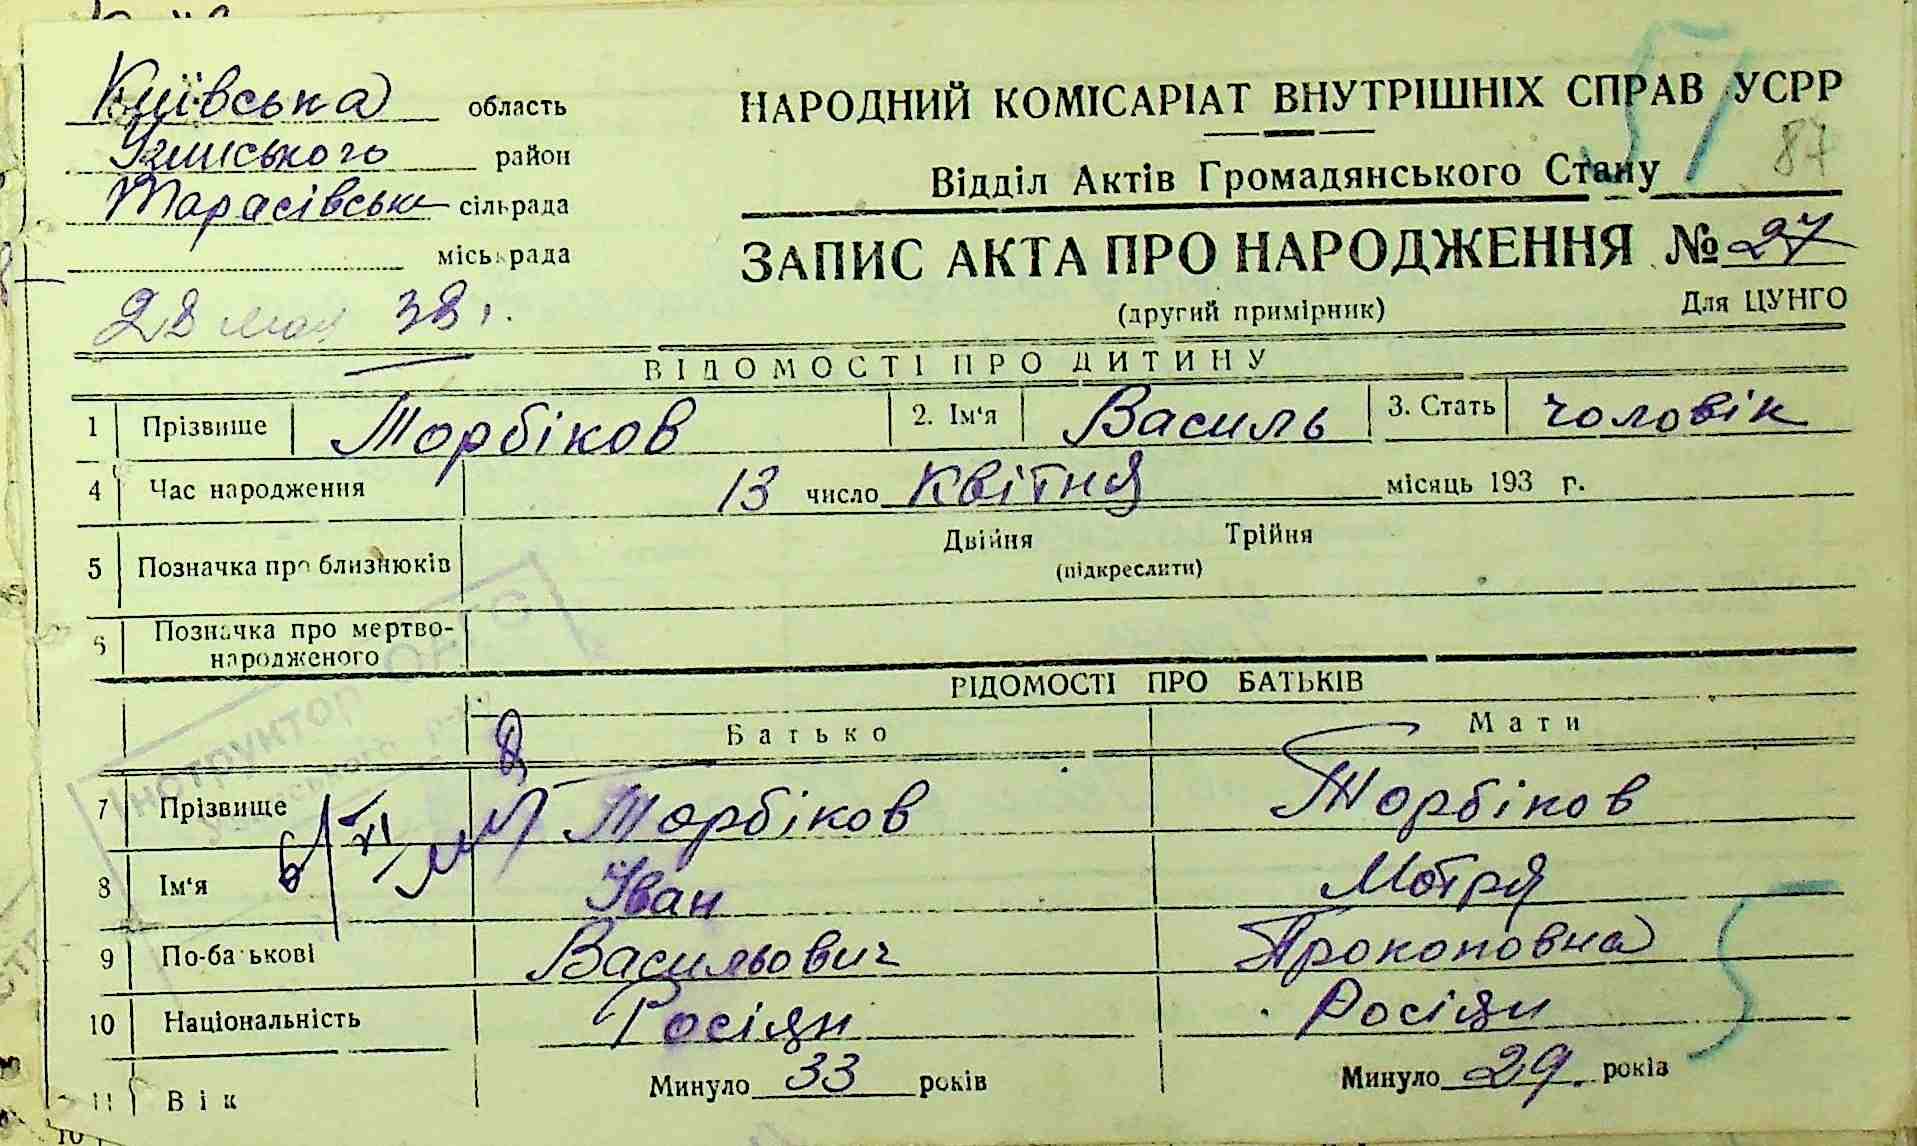 Київська область
район
Тарасівська сільрада
міськрада
28 мая 38 г.
НАРОДНИЙ КОМІСАРІАТ ВНУТРІШНІХ СПРАВ УСРР
51
87
Відділ Актів Громадянського Стану
ЗАПИС АКТА ПРО НАРОДЖЕННЯ № 27
(другий примірник) Для ЦУНГО
ВІДОМОСТІ ПРО ДИТИНУ
1 Прізвище Торбіков 2. Ім'я Василь 3. Стать чоловік
4 Час народження 13 число Квітня місяць 193 г.
5 Позначка про близнюків Двійня Трійня
(підкреслити)
6 Позначка про мертво-
народженого
ВІДОМОСТІ ПРО БАТЬКІВ
Батько Мати
7 Прізвище Торбіков Торбіков
8 Ім'я Іван Мотря
9 По-батькові Васильович Прокоповна
10 Національність Росіян Росіян
11 Вік Минуло 33 років Минуло 29 років
Інструктор